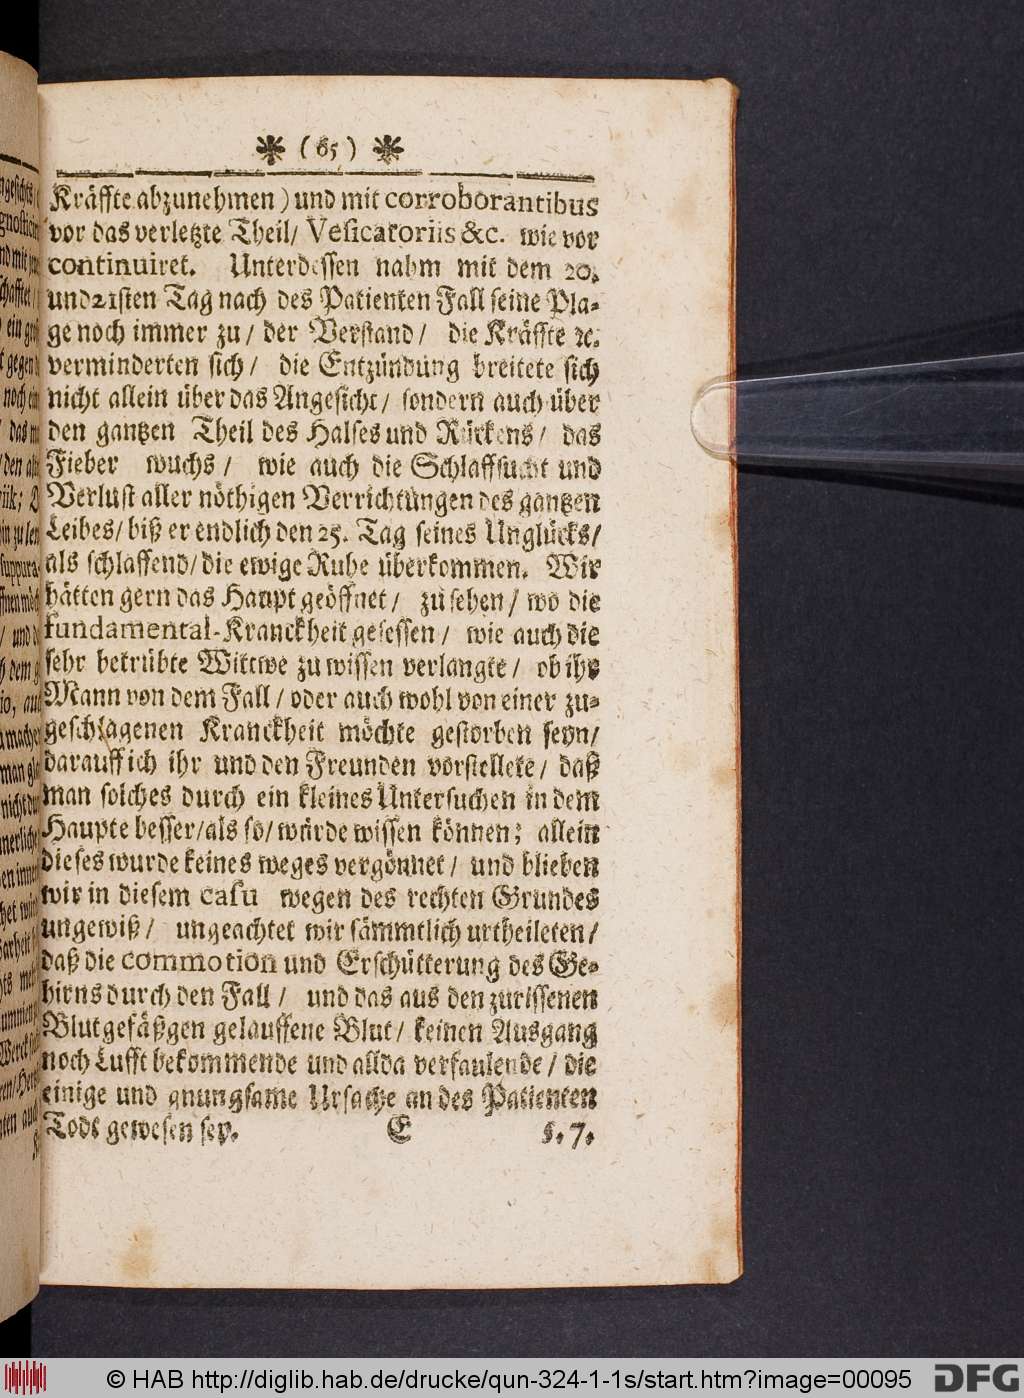 ❋ (65) ❋
Kräffte abzunehmen) und mit corroborantibus
vor das verletzte Theil/ Vesicatoriis &c. wie vor
continuiret. Unterdessen nahm mit dem 20.
und 21sten Tag nach des Patienten Fall seine Pla-
ge noch immer zu/ der Verstand/ die Kräffte ꝛc.
verminderten sich/ die Entzündung breitete sich
nicht allein über das Angesicht/ sondern auch über
den gantzen Theil des Halses und Rückens/ das
Fieber wuchs/ wie auch die Schlaffsucht und
Verlust aller nöthigen Verrichtungen des gantzen
Leibes/ biß er endlich den 25. Tag seines Unglücks/
als schlaffend/ die ewige Ruhe überkommen. Wir
hätten gern das Haupt geöffnet/ zu sehen/ wo die
fundamental-Kranckheit gesessen/ wie auch die
sehr betrübte Wittwe zu wissen verlangte/ ob ihr
Mann von dem Fall/ oder auch wohl von einer zu-
geschlagenen Kranckheit möchte gestorben seyn/
darauff ich ihr und den Freunden vorstellete/ daß
man solches durch ein kleines Untersuchen in dem
Haupte besser/ als so/ würde wissen können; allein
dieses wurde keines weges vergönnet/ und blieben
wir in diesem casu wegen des rechten Grundes
ungewiß/ ungeachtet wir sämmtlich urtheileten/
daß die commotion und Erschütterung des Ge-
hirns durch den Fall/ und das aus den zurissenen
Blutgefäßgen gelauffene Blut/ keinen Ausgang
noch Lufft bekommende und allda verfaulende/ die
einige und gnungsame Ursache an des Patienten
Todt gewesen sey. E §. 7.
© HAB http://diglib.hab.de/drucke/qun-324-1-1s/start.htm?image=00095 DFG